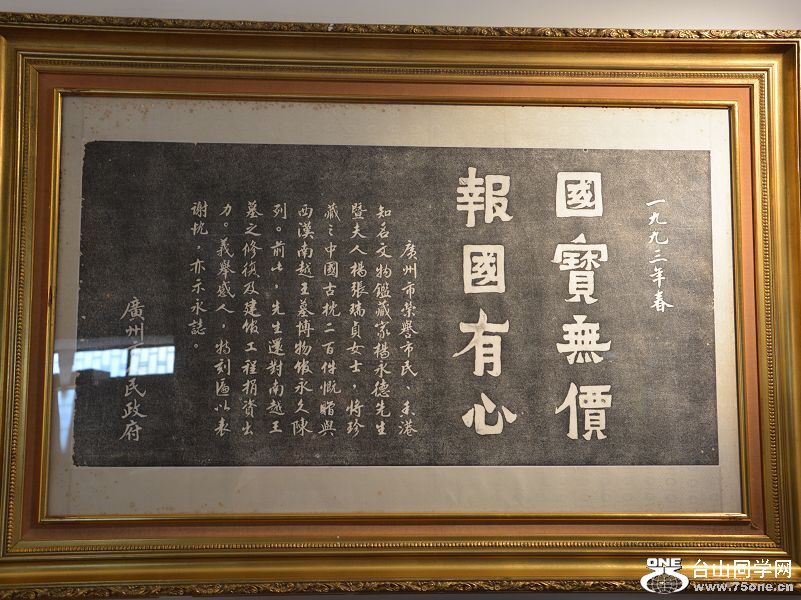 一九九三年春
國寶無價
報國有心
廣州市榮譽市民、香港
知名文物鑑藏家楊永德先生
暨夫人楊張瑞貞女士，將珍
藏之中國古枕二百件慨贈與
西漢南越王墓博物館永久陳
列。前此，先生還對南越王
墓之修復及建館工程捐資出
力。義舉感人，特刻匾以表
謝忱，亦示永誌。
廣州市人民政府
ONE
台山同学网
www.75one.cn